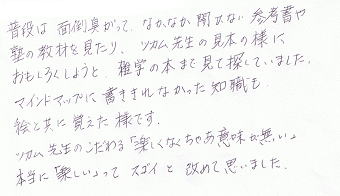 普段は 面倒臭がって、なかなか開かない参考書や
塾の教材を見たり、ツカム先生の見本の様に
おもしろくしようと、雑学の本まで見て探していました。
マインドマップに書ききれなかった知識も
絵と共に覚えた様です。
ツカム先生のこだわる「楽しくなくちゃあ意味が無い」
本当に「楽しい」って スゴイ と 改めて思いました。